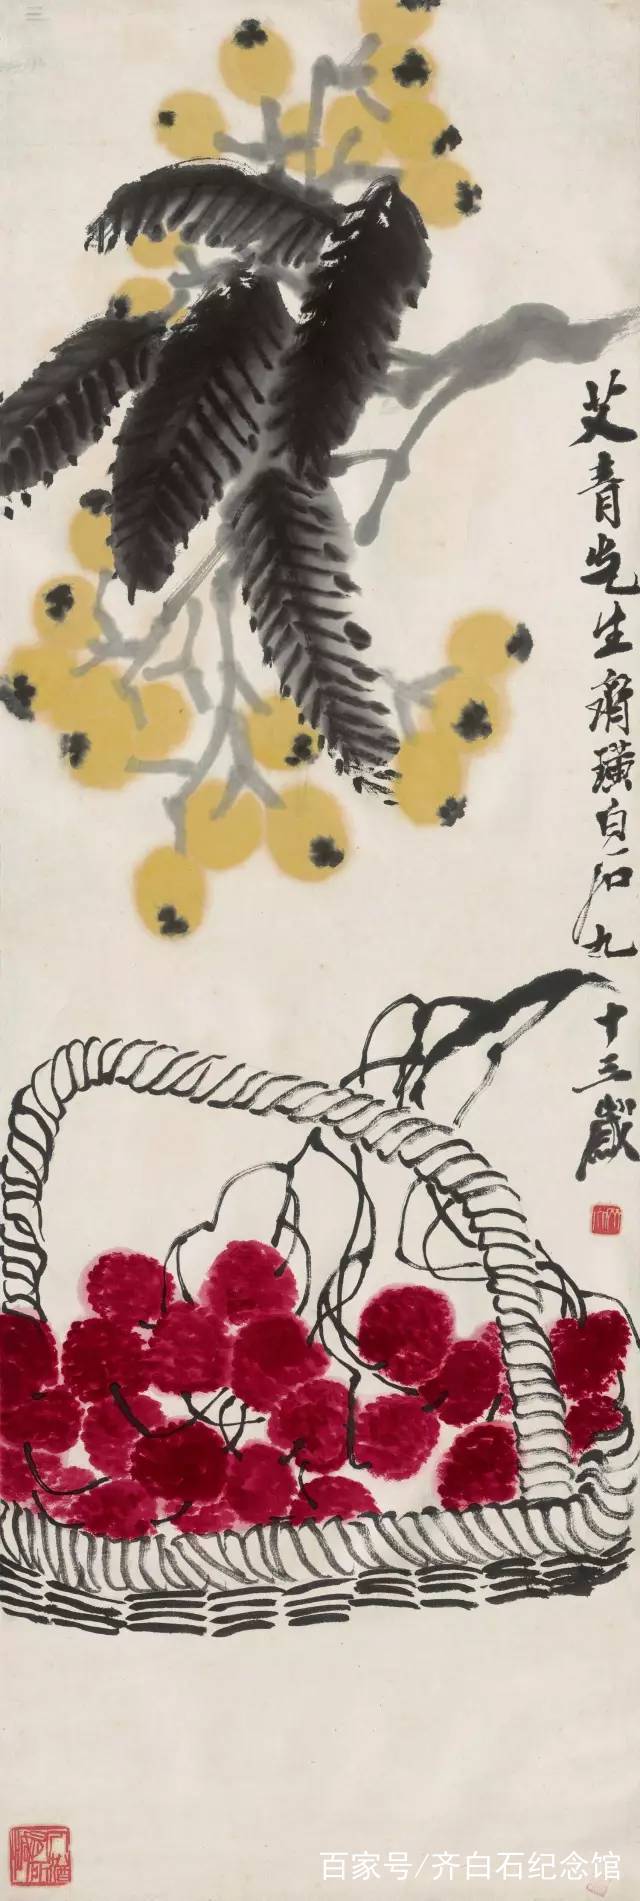 艾青先生齊璜白石九十三歲
百家号/齐白石纪念馆